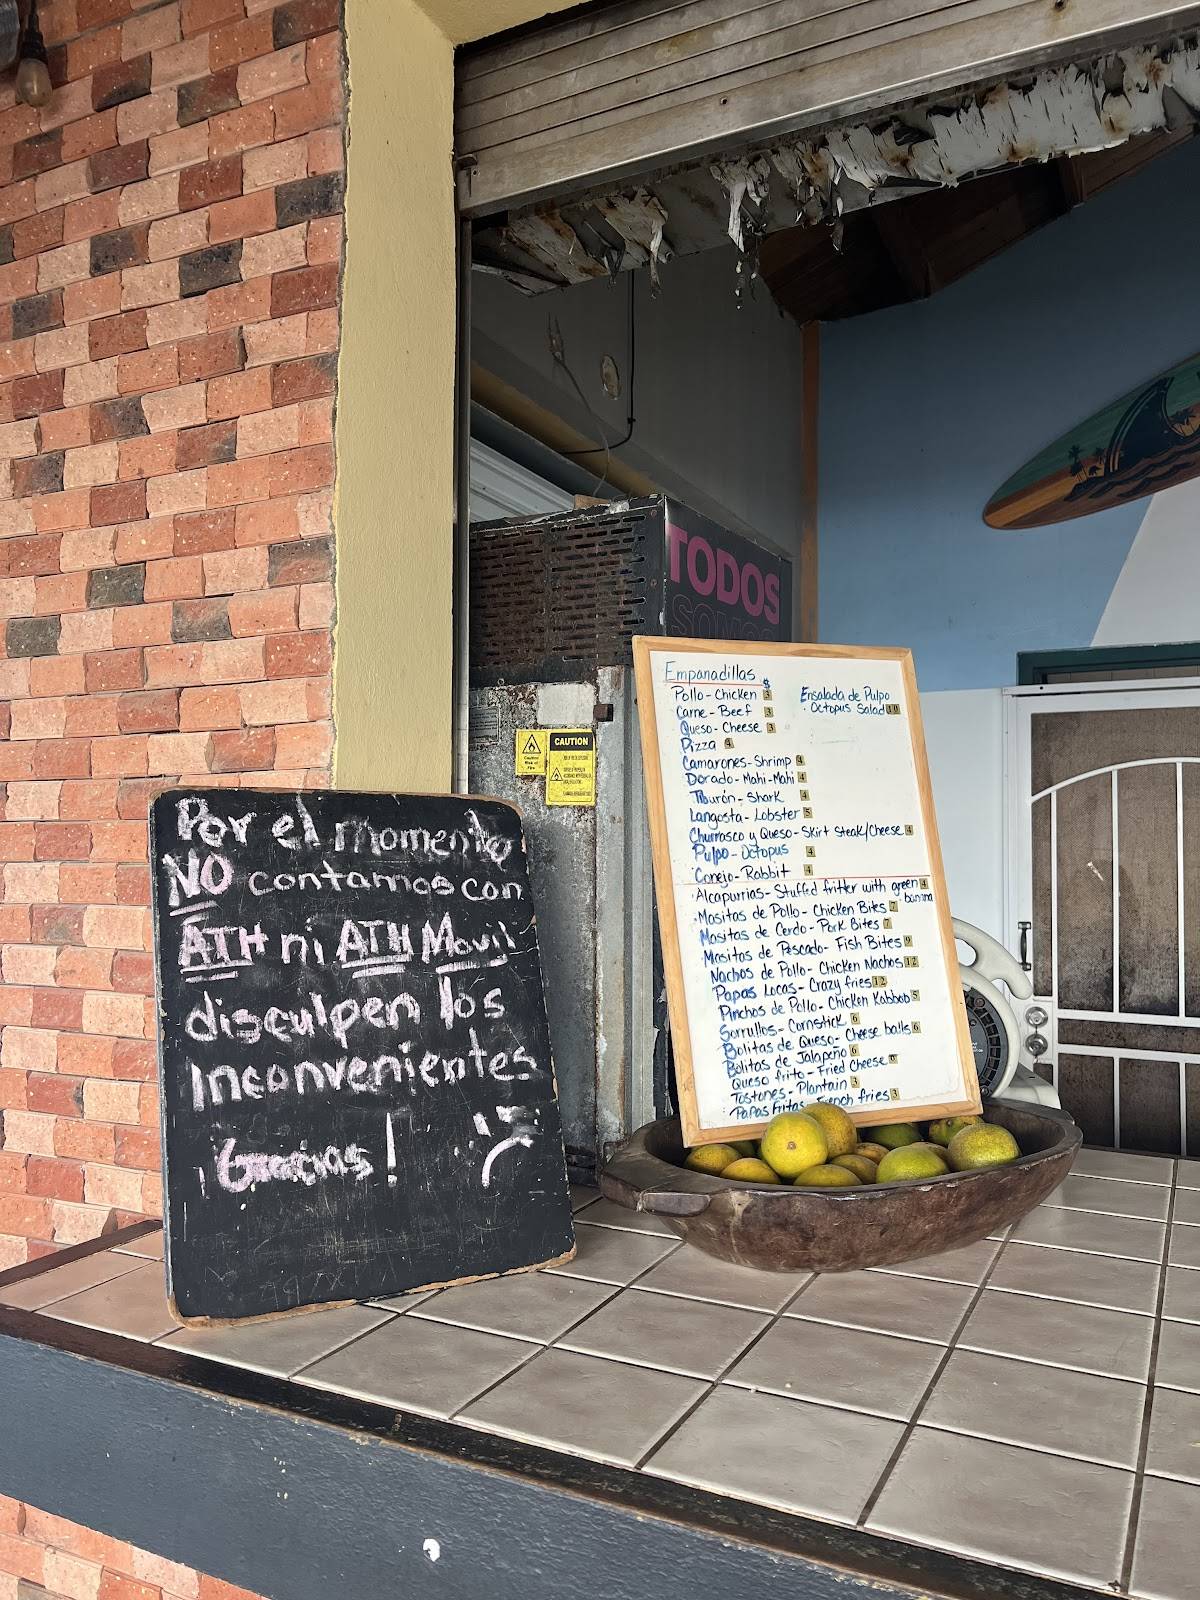 Por el momento
NO contamos con
ATH ni ATH Movil
disculpen los
inconvenientes
¡Gracias!
TODOS
SOMOS
CAUTION
Empanadillas $
Pollo - Chicken 3
Carne - Beef 3
Queso - Cheese 3
Pizza 4
Camarones - Shrimp 4
Dorado - Mahi-Mahi 4
Tiburón - Shark 4
Langosta - Lobster 5
Churrasco y Queso - Skirt Steak/Cheese 4
Pulpo - Octopus 4
Conejo - Rabbit 4
Ensalada de Pulpo
Octopus Salad 10
Alcapurrias - Stuffed fritter with green 4
banana
Masitas de Pollo - Chicken Bites 7
Masitas de Cerdo - Pork Bites 7
Masitas de Pescado - Fish Bites 9
Nachos de Pollo - Chicken Nachos 12
Papas Locas - Crazy fries 12
Pinchos de Pollo - Chicken Kabbob 5
Sorrullos - Cornstick 6
Bolitas de Queso - Cheese balls 6
Bolitas de Jalapeño 6
Queso frito - Fried Cheese
Tostones - Plantain 3
Papas Fritas - French fries 3